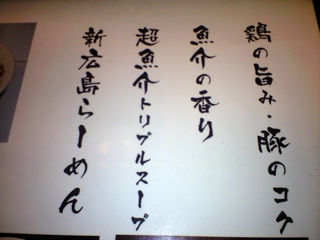 鶏の旨み・豚のコク
魚介の香り
超魚介トリプルスープ
新広島らーめん